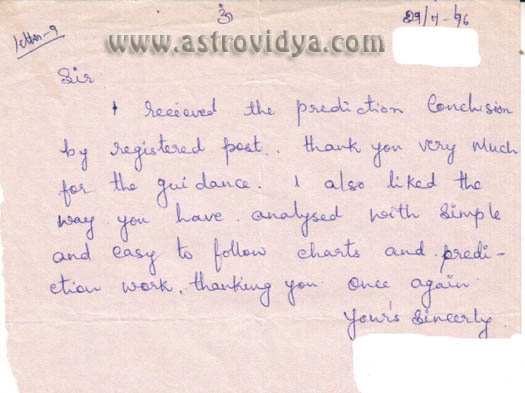 ॐ
29/7-96
letter-9
www.astrovidya.com
Sir
I receieved the prediction Conclusion
by registered post. thank you very much
for the guidance. I also liked the
way you have analysed with simple
and easy to follow charts and predi-
ction work. thanking you once again
Your's Sincerly